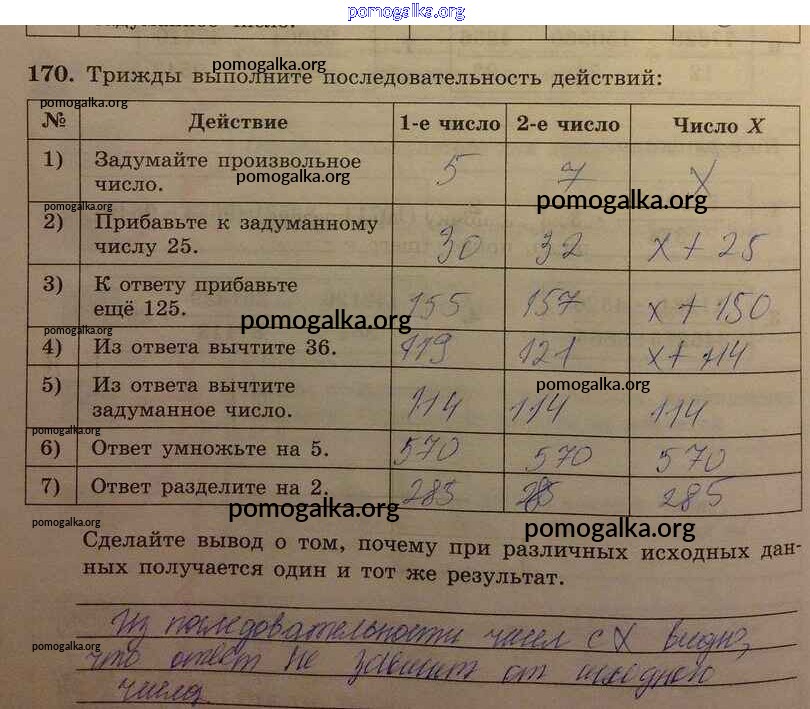 pomogalka.org
задуманное число.
170. Трижды выполните последовательность действий:
pomogalka.org
pomogalka.org
№ Действие 1-е число 2-е число Число X
1) Задумайте произвольное число. 5 7 X
pomogalka.org
pomogalka.org
pomogalka.org
2) Прибавьте к задуманному числу 25. 30 32 x + 25
3) К ответу прибавьте ещё 125. 155 157 x + 150
pomogalka.org
pomogalka.org
4) Из ответа вычтите 36. 119 121 x + 114
5) Из ответа вычтите задуманное число. 114 114 114
pomogalka.org
pomogalka.org
6) Ответ умножьте на 5. 570 570 570
7) Ответ разделите на 2. 285 285 285
pomogalka.org
pomogalka.org
pomogalka.org
Сделайте вывод о том, почему при различных исходных дан-
ных получается один и тот же результат.
pomogalka.org
Из последовательности чисел с X видно,
что ответ не зависит от исходного
числа
pomogalka.org